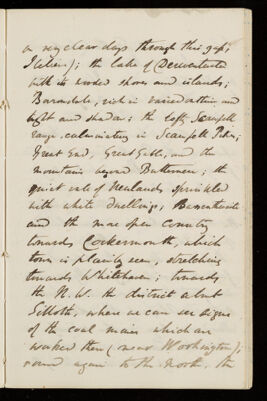 on very clear days through this gap;
); the lake of Derwentwater
with its wooded shores and islands;
Borrowdale, rich in varied outline, and
light and shadow; the lofty Scawfell
range, culminating in Scawfell Pikes;
Great End, Great Gable, and the
mountains beyond Buttermere; the
quiet vale of Newlands sprinkled
with white dwellings; Bassenthwaite
and the more open country
towards Cockermouth, which
town is plainly seen, stretching
towards Whitehaven; towards
the N.W. the district about
Silloth, where we can see signs
of the coal mines which are
worked there (near Workington);
round again to the North, the